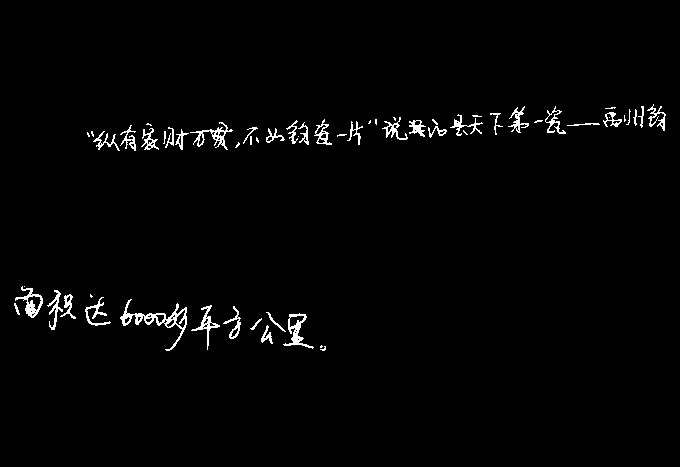 “纵有家财万贯，不如钧瓷一片”说的便是天下第一瓷——禹州钧
面积达6000多平方公里。